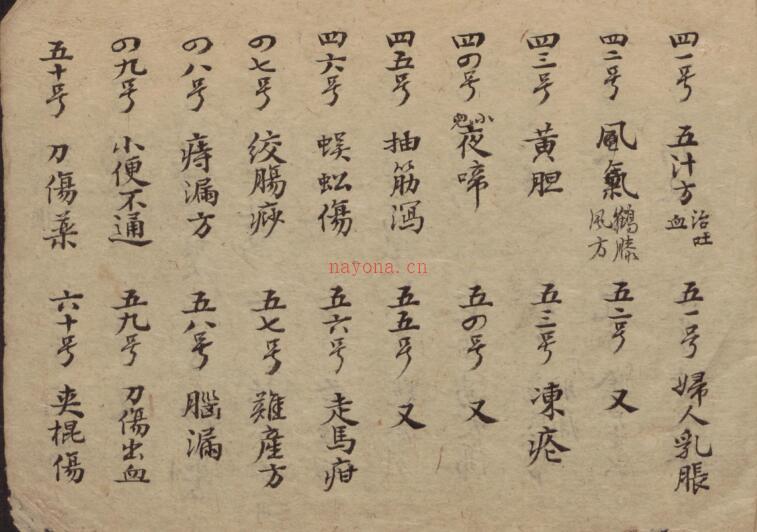 四一号 五汁方 治吐血 五一号 婦人乳脹
四二号 風氣 鶴膝風方 五二号 又
四三号 黄胆 五三号 凍疮
四四号 小兒夜啼 五四号 又
四五号 抽筋瀉 五五号 又
四六号 蜈蚣傷 五六号 走馬疳
四七号 绞腸痧 五七号 難產方
四八号 痔漏方 五八号 腦漏
四九号 小便不通 五九号 刀傷出血
五十号 刀傷薬 六十号 夾棍傷
nayona.cn